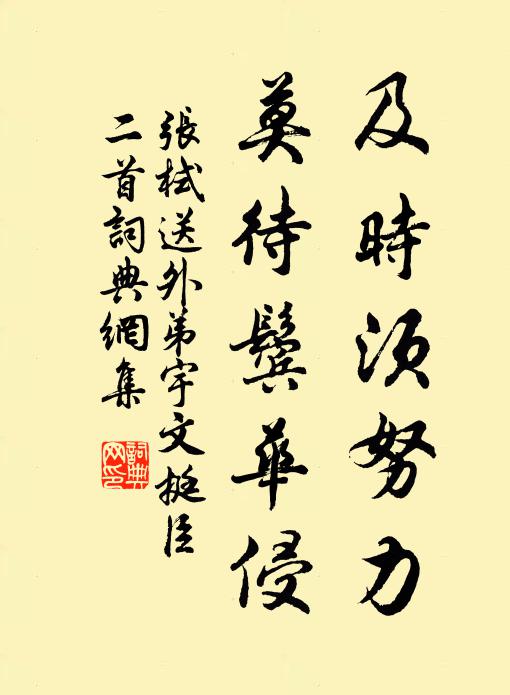 及時須努力
莫待鬢華侵
張栻送外弟宇文挺臣
二首詞典網集
詞典
网印